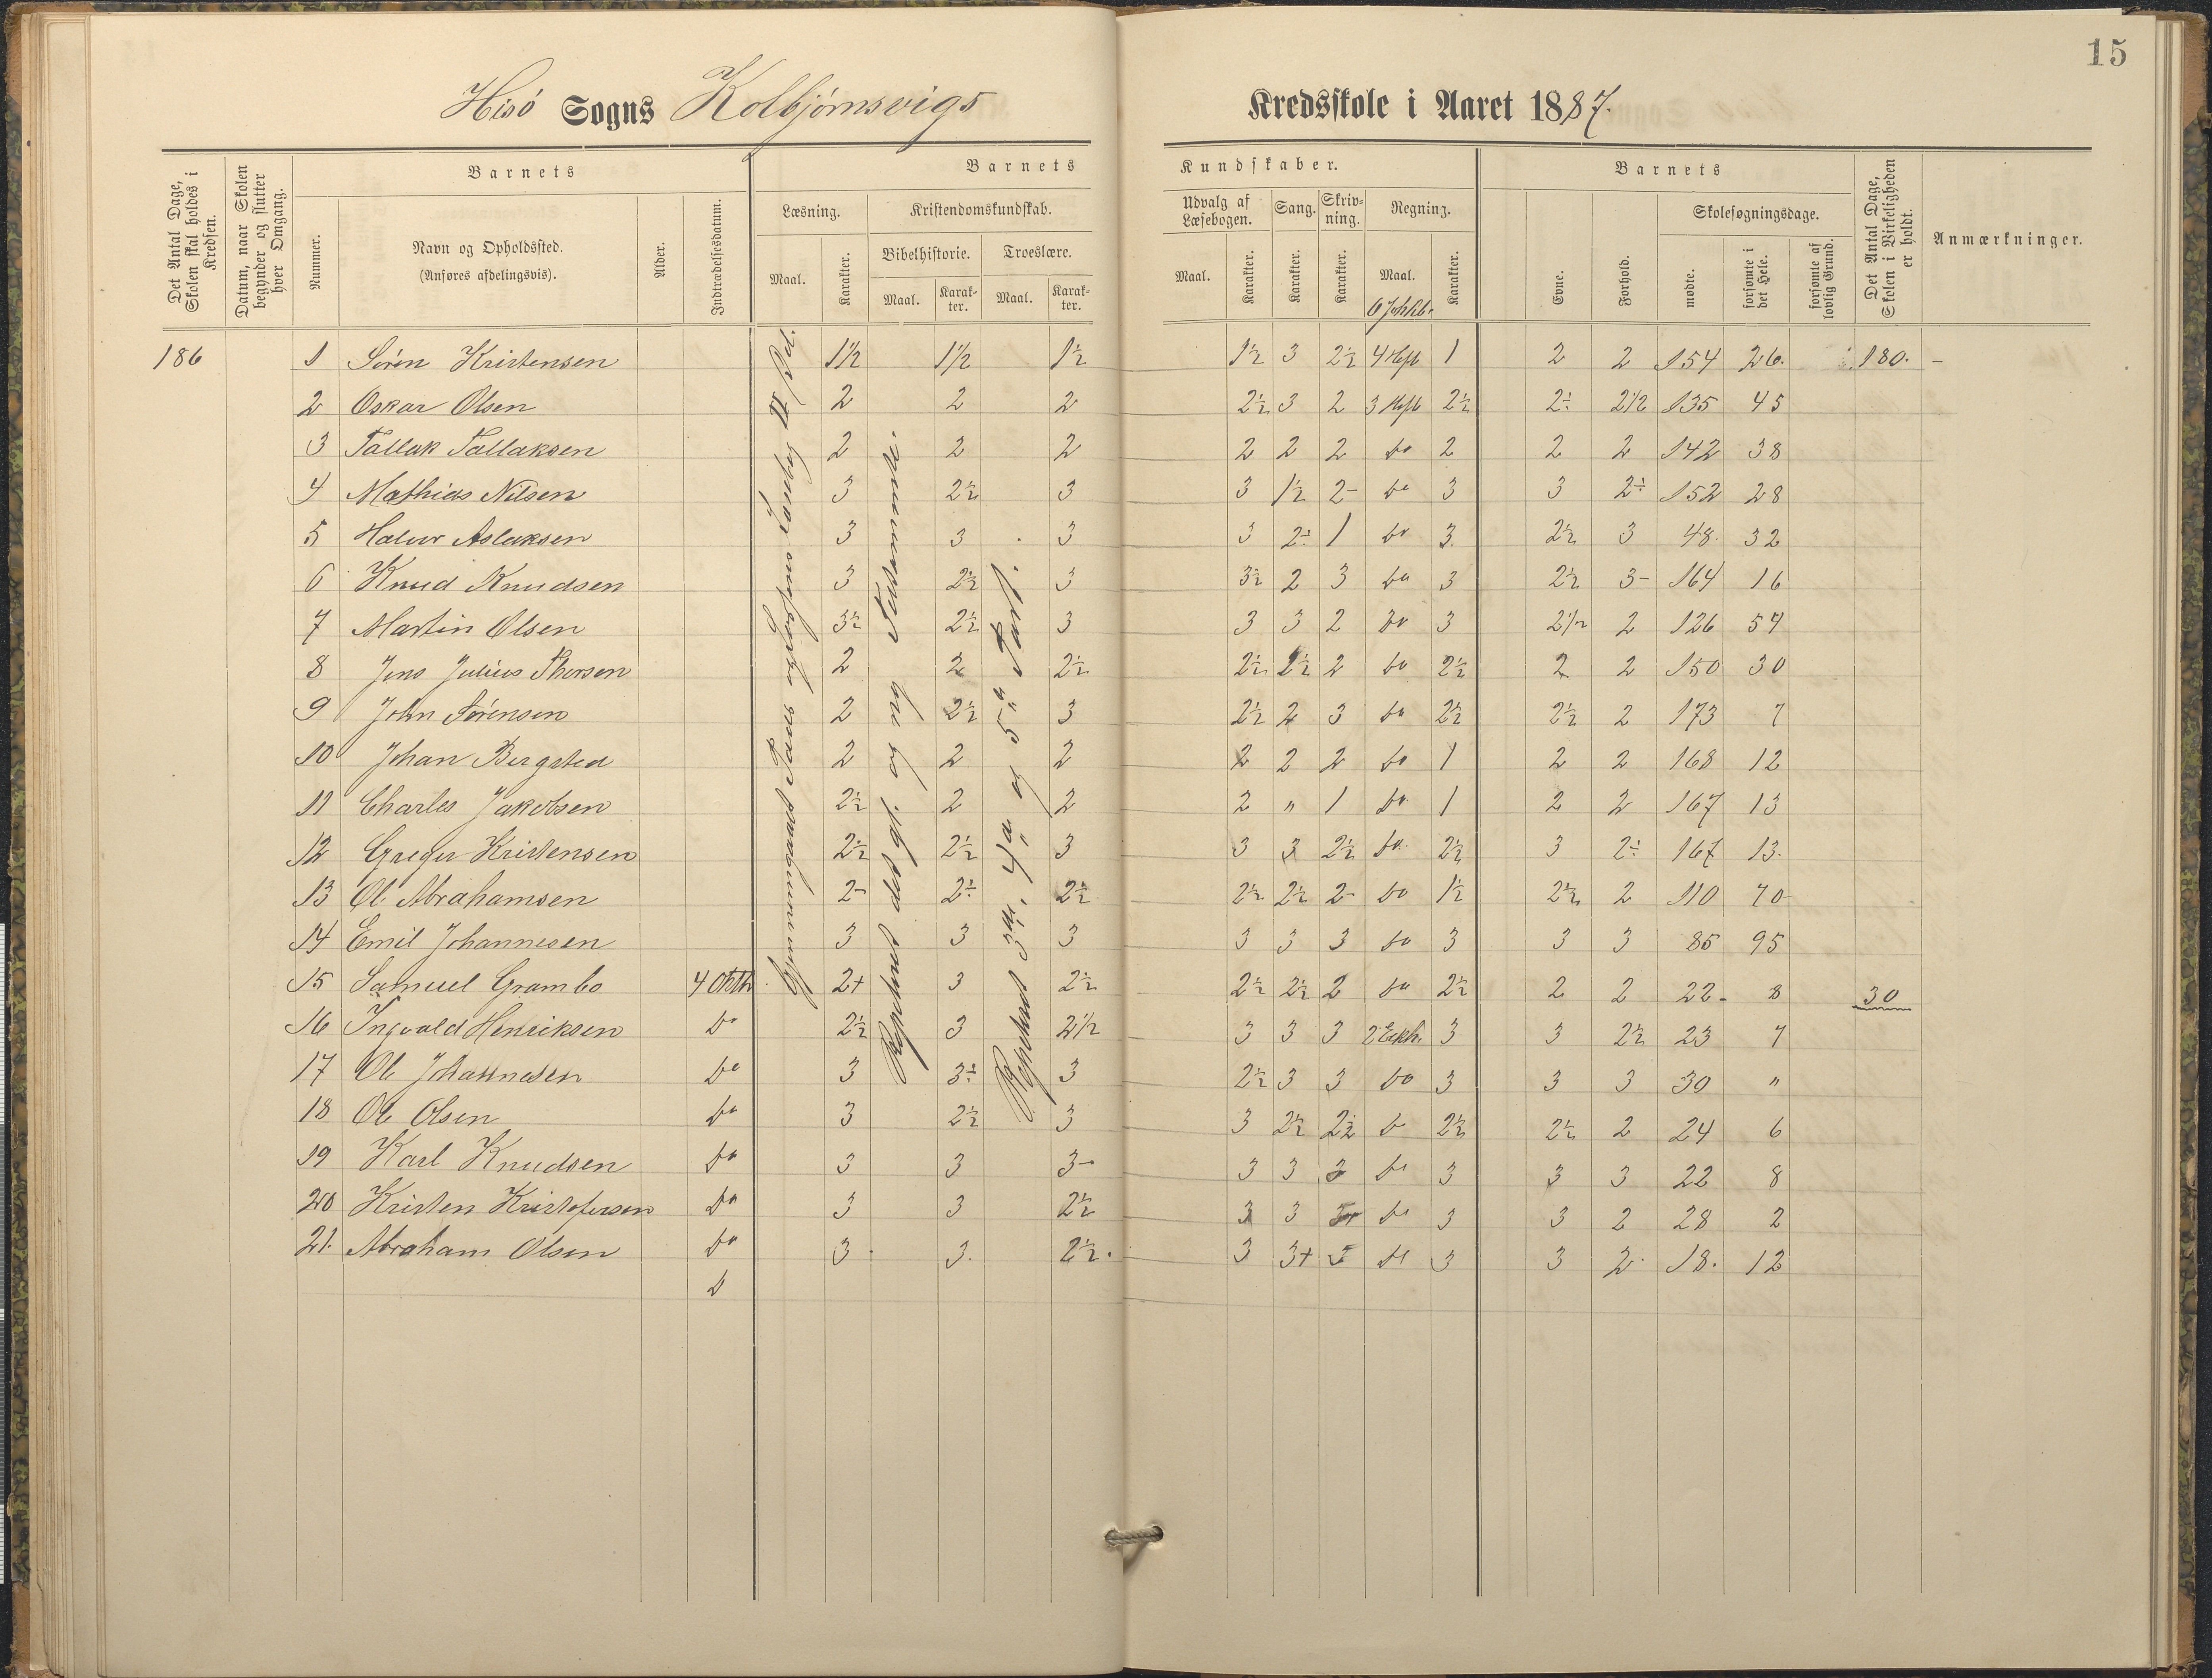 15
Hisö Sogns Kolbjörnsvigs
Kredsskole i Aaret 1887.
Det Antal Dage, Skolen skal holdes i Kredsen.
Datum, naar Skolen begynder og slutter hver Omgang.
Barnets
Nummer.
Navn og Opholdssted.
(Anføres afdelingsvis).
Alder.
Indtrædelsesdatum.
Barnets
Kundskaber.
Læsning.
Maal.
Karakter.
Kristendomskundskab.
Bibelhistorie.
Maal.
Karakter.
Troeslære.
Maal.
Karakter.
Udvalg af Læsebogen.
Maal.
Karakter.
Sang.
Karakter.
Skrivning.
Karakter.
Regning.
Maal.
Karakter.
Barnets
Evne.
Forhold.
Skolesøgningsdage.
mødte.
forsømte i det Hele.
forsømte af lovlig Grund.
Det Antal Dage, Skolen i Virkeligheden er holdt.
Anmærkninger.
186 1 Sören Kristensen 1½ 1½ 1½ 1½ 3 2½ 4 Heft 1 2 2 154 26. 180. –
2 Oskar Olsen 2 2 2 2½ 3 2 3 Heft 2½ 2÷ 2½ 135 45
3 Tallak Tallaksen 2 2 2 2 2 2 do 2 2 2 142 38
4 Mathias Nilsen 3 2½ 3 3 1½ 2- do 3 3 2÷ 152 28
5 Halvor Aslaksen 3 3 3 3 2÷ 1 do 3 2½ 3 48 32
6 Knud Knudsen 3 2½ 3 3½ 2 3 do 3 2½ 3- 164 16
7 Martin Olsen 3½ 2½ 3 3 3 2 do 3 2½ 2 126 54
8 Jens Julius Thorsen 2 2 2½ 2½ 2½ 2 do 2½ 2 2 150 30
9 John Sörensen 2 2½ 3 2½ 2 3 do 2½ 2½ 2 173 7
10 Johan Bergsted 2 2 2 2 2 2 do 1 2 2 168 12
11 Charles Jakobsen 2½ 2 2 2 " 1 do 1 2 2 167 13
12 Greger Kristensen 2½ 2½ 3 3 3 2½ do 2½ 3 2÷ 167 13.
13 Ole Abrahamsen 2- 2÷ 2½ 2½ 2½ 2- do 1½ 2½ 2 110 70
14 Emil Johannesen 3 3 3 3 3 3 do 3 3 3 85 95
15 Samuel Grambo 4 Okth 2+ 3 2½ 2½ 2½ 2 do 2½ 2 2 22 8 30
16 Ingvald Henriksen do 2½ 3 2½ 3 3 3 3 3 2½ 23 7
17 Ole Johannesen do 3 3÷ 3 2½ 3 3 do 3 3 3 30 "
18 Ole Olsen do 3 2½ 3 3 2½ 2½ do 2½ 2½ 2 24 6
19 Karl Knudsen do 3 3 3- 3 3 3 do 3 3 3 22 8
20 Kristen Kristofersen do 3 3 2½ 3 3 do 3 3 2 28 2
21. Abraham Olsen do 3 3. 2½. 3 3+ 3 do 3 3 2 18. 12
Repeteret det gl. og ny Testammente.
Repeteret 3die, 4de og 5te Part.